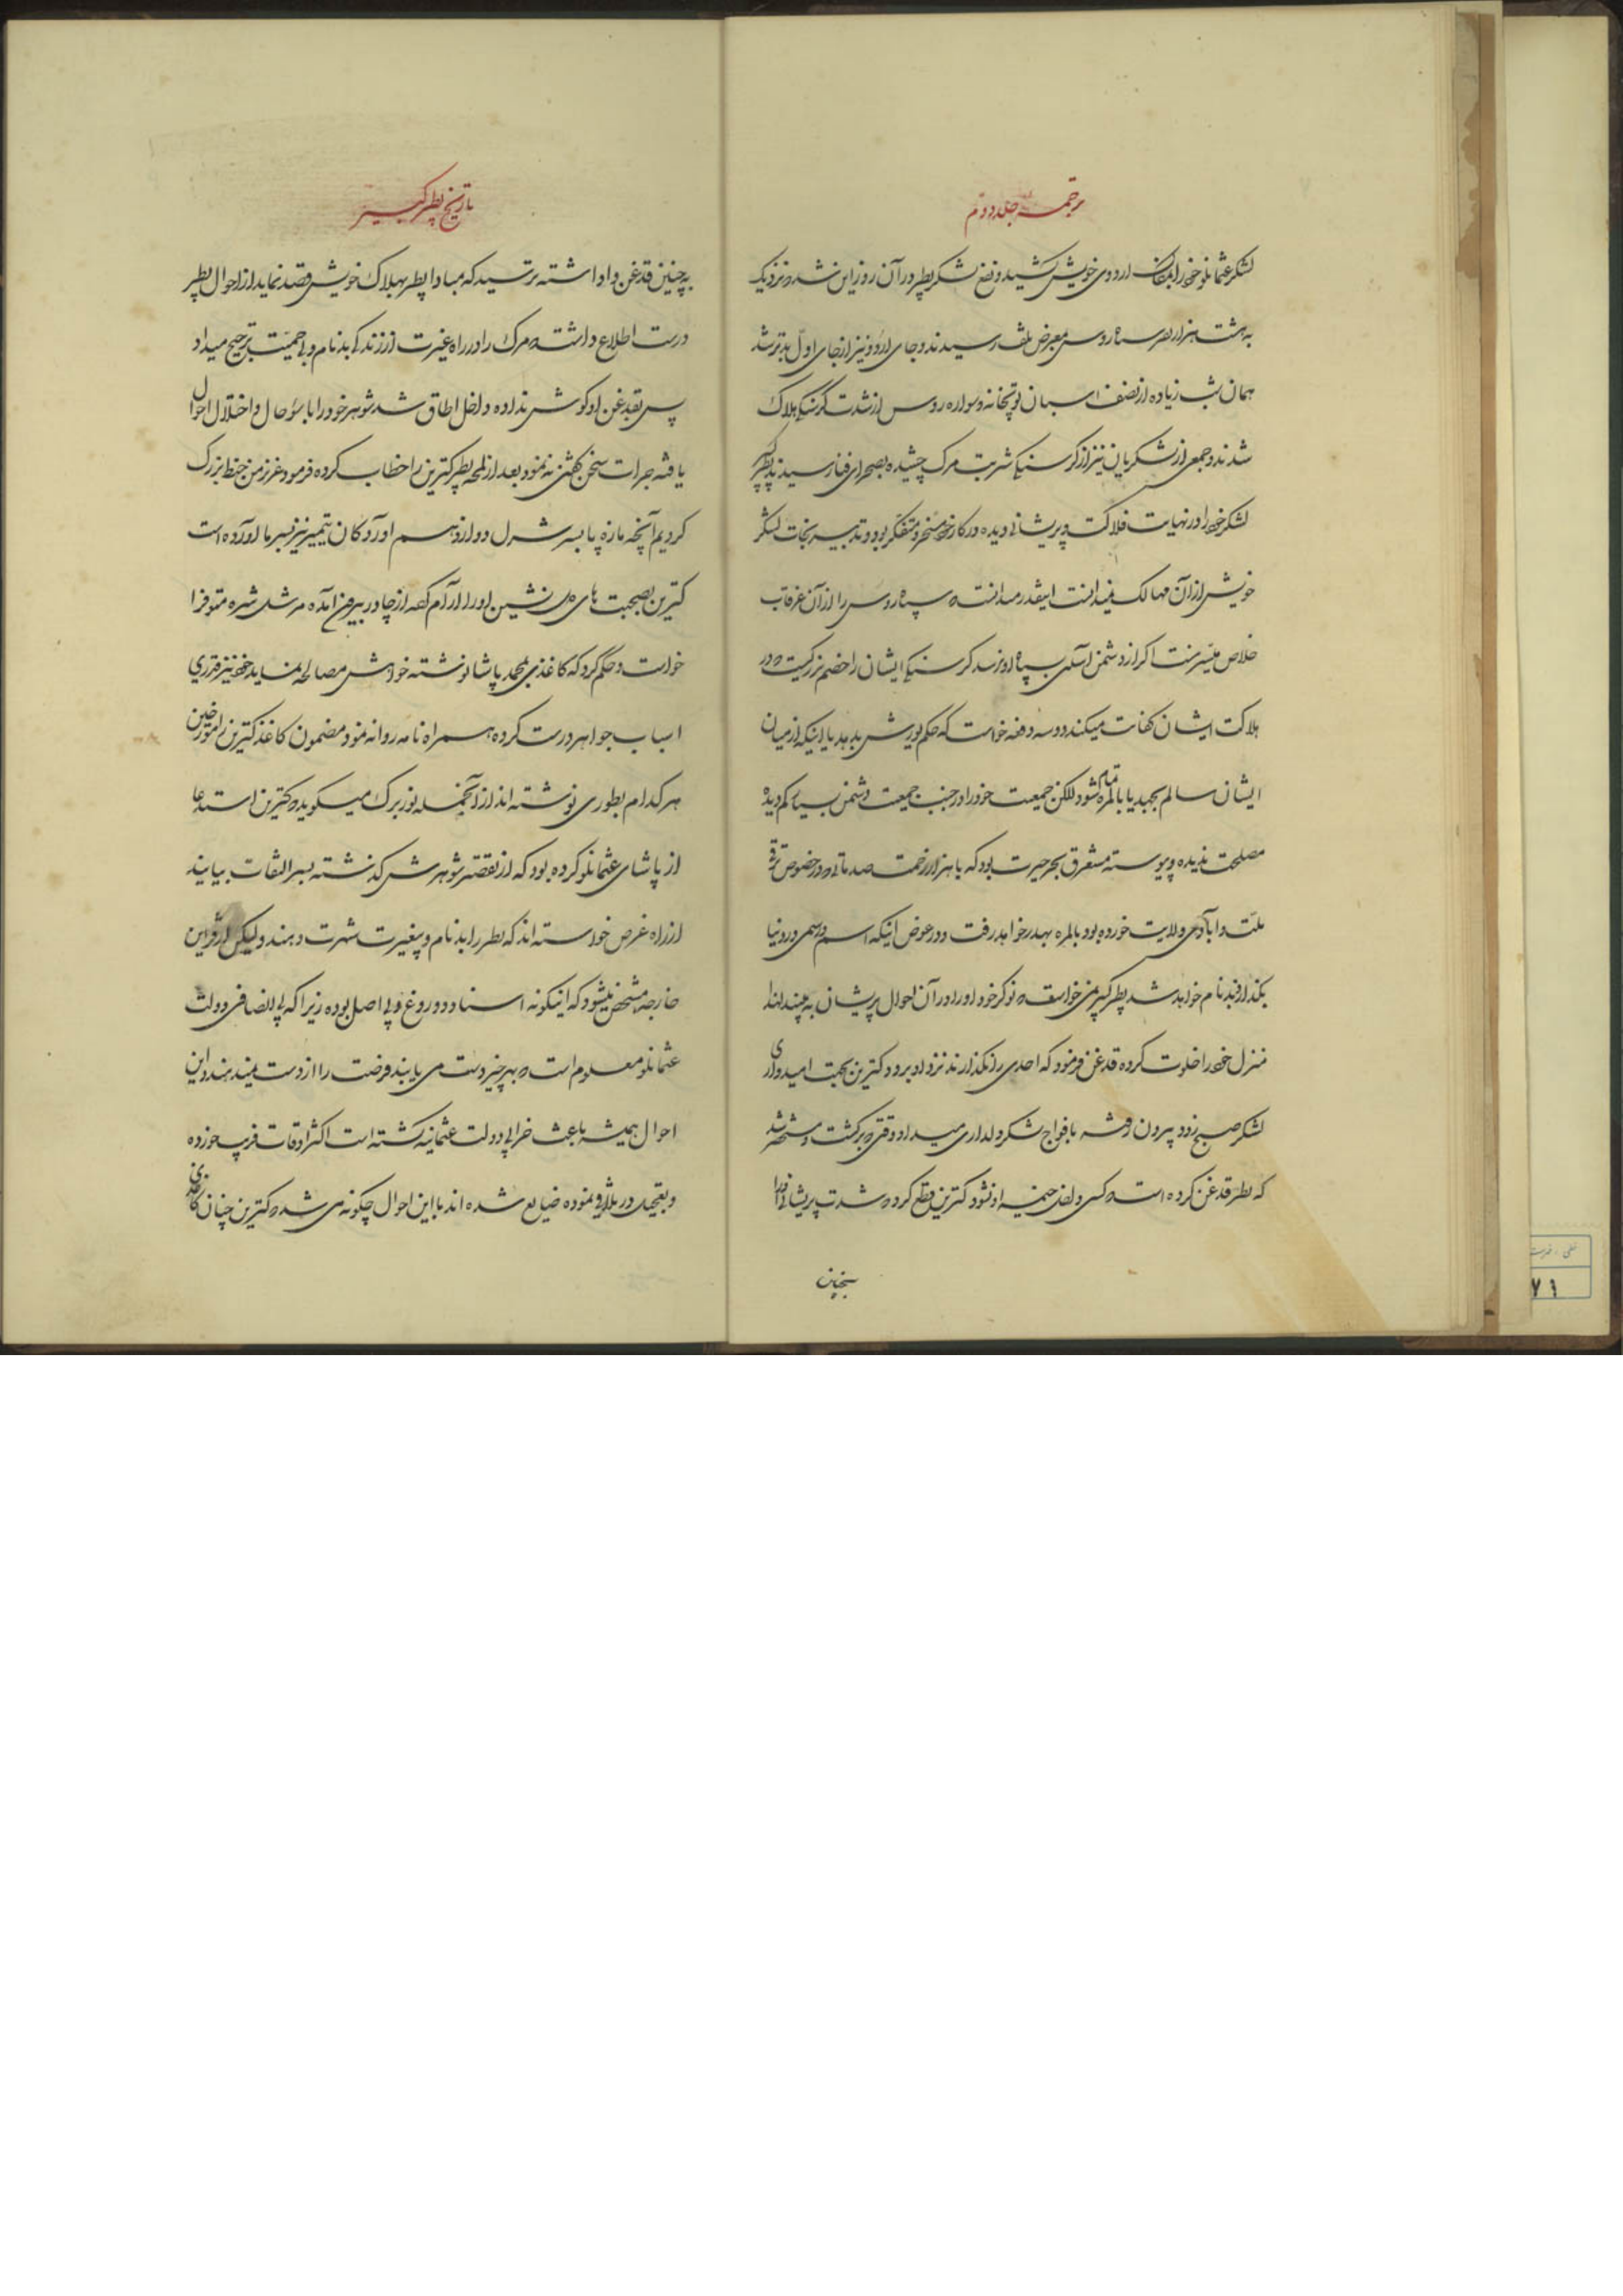 ترجمه جلد دوم
لشکر عثمانلو خود را بمکان اردوی خویش کشید و نفع لشکر پطر در آن روز این شد که نزدیک
به هشت هزار نفر سپاه روس بمعرض تلف رسیدند و جای اردو نیز از جای اول بدتر شد
همان شب زیاده از نصف اسبان توپخانه و سواره روس از شدت گرسنگی هلاک
شدند و جمعی از لشکریان نیز از گرسنگی شربت مرگ چشیده بصحرای فنا رسیدند پطر
لشکر خود را در نهایت فلاکت و پریشانی دیده در کار خود متحیر و متفکر بود و تدبیر نجات لشکر
خویش از آن مهالک نمیدانست اینقدر میدانست که سپاه روس را از آن غرقاب
خلاص میسر نیست اگر از دشمن آسیبی بسپاه او نرسد گرسنگی ایشان را خصم بزرگیست که در
هلاکت ایشان کفایت میکند دو سه دفعه خواست که حکم یورش بدهد یا اینکه از میان
ایشان سالم بجهد یا بالمره تمام شود لکن جمعیت خود را در جنب جمعیت دشمن بسیار کم دیده
مصلحت ندیده و پیوسته مستغرق بحر حیرت بود که با هزار زحمت صدماتی که در خصوص ترقی
ملت و آبادی ولایت خورده بود بالمره بهدر خواهد رفت و در عوض اینکه اسم و رسمی در دنیا
بگذارد بدنام خواهد شد پطر کبیر نمی خواست که نوکر خود او را در آن احوال پریشان به بیند لهذا
منزل خود را خلوت کرده قدغن فرمود که احدی را نگذارند نزد او برود کترین بجهت امیدواری
لشکر صبح زود بیرون رفته بافواج لشکر دلداری میداد وقتی که برگشت و مستحضر شد
که پطر قدغن کرده است که کسی داخل خیمه او نشود کترین قطع کرد که شدت پریشانی او را
بچنین
تاریخ پطر کبیر
به چنین قدغن وا داشته ترسید که مبادا پطر بهلاک خویش قصد نماید از احوال پطر
درست اطلاع داشت که مرگ را در راه غیرت از زندگی بدنام و بی حمیت ترجیح میداد
پس بقدغن او گوش نداده داخل اطاق شد شوهر خود را با سوء حال و اختلال احوال
یافته جرأت سخن گفتن نه نمود بعد از لمحه پطر کترین را خطاب کرده فرمود عزیز من خبط بزرگ
کردیم آنچه ما زه پا بسر شرل دوازدهم آورد کان یتمیر نیز بسر ما آورده است
کترین بصحبت های دل نشین او را آرام کرده از چادر بیرون آمده مرشل شره متوفزا
خواست و حکم کرد که کاغذی بمحمد پاشا نوشته خواهش مصالحه نماید خود نیز قدری
اسباب جواهر درست کرده همراه نامه روانه نمود مضمون کاغذ کترین را مورخین
هر کدام بطوری نوشته اند از آنجمله نوربرک میگوید که کترین استدعا
از پاشای عثمانلو کرده بود که از تقصیر شوهرش گذشته بسر التفات بیایند
از راه غرض خواسته اند که پطر را بدنام و بیغیرت شهرت دهند و لیکن از قراین
خارجه مشخص میشود که اینگونه اسناد دروغ و بی اصل بوده زیرا که بی انصافی دولت
عثمانلو معلوم است که بهر چیز دست می یابند فرصت را از دست نمیدهند و این
احوال همیشه باعث خرابی دولت عثمانیه گشته است اکثر اوقات فریب خورده
و بعجله در تلافی نموده ضایع شده اند با این احوال چگونه می شد که کترین چنان کاغذی